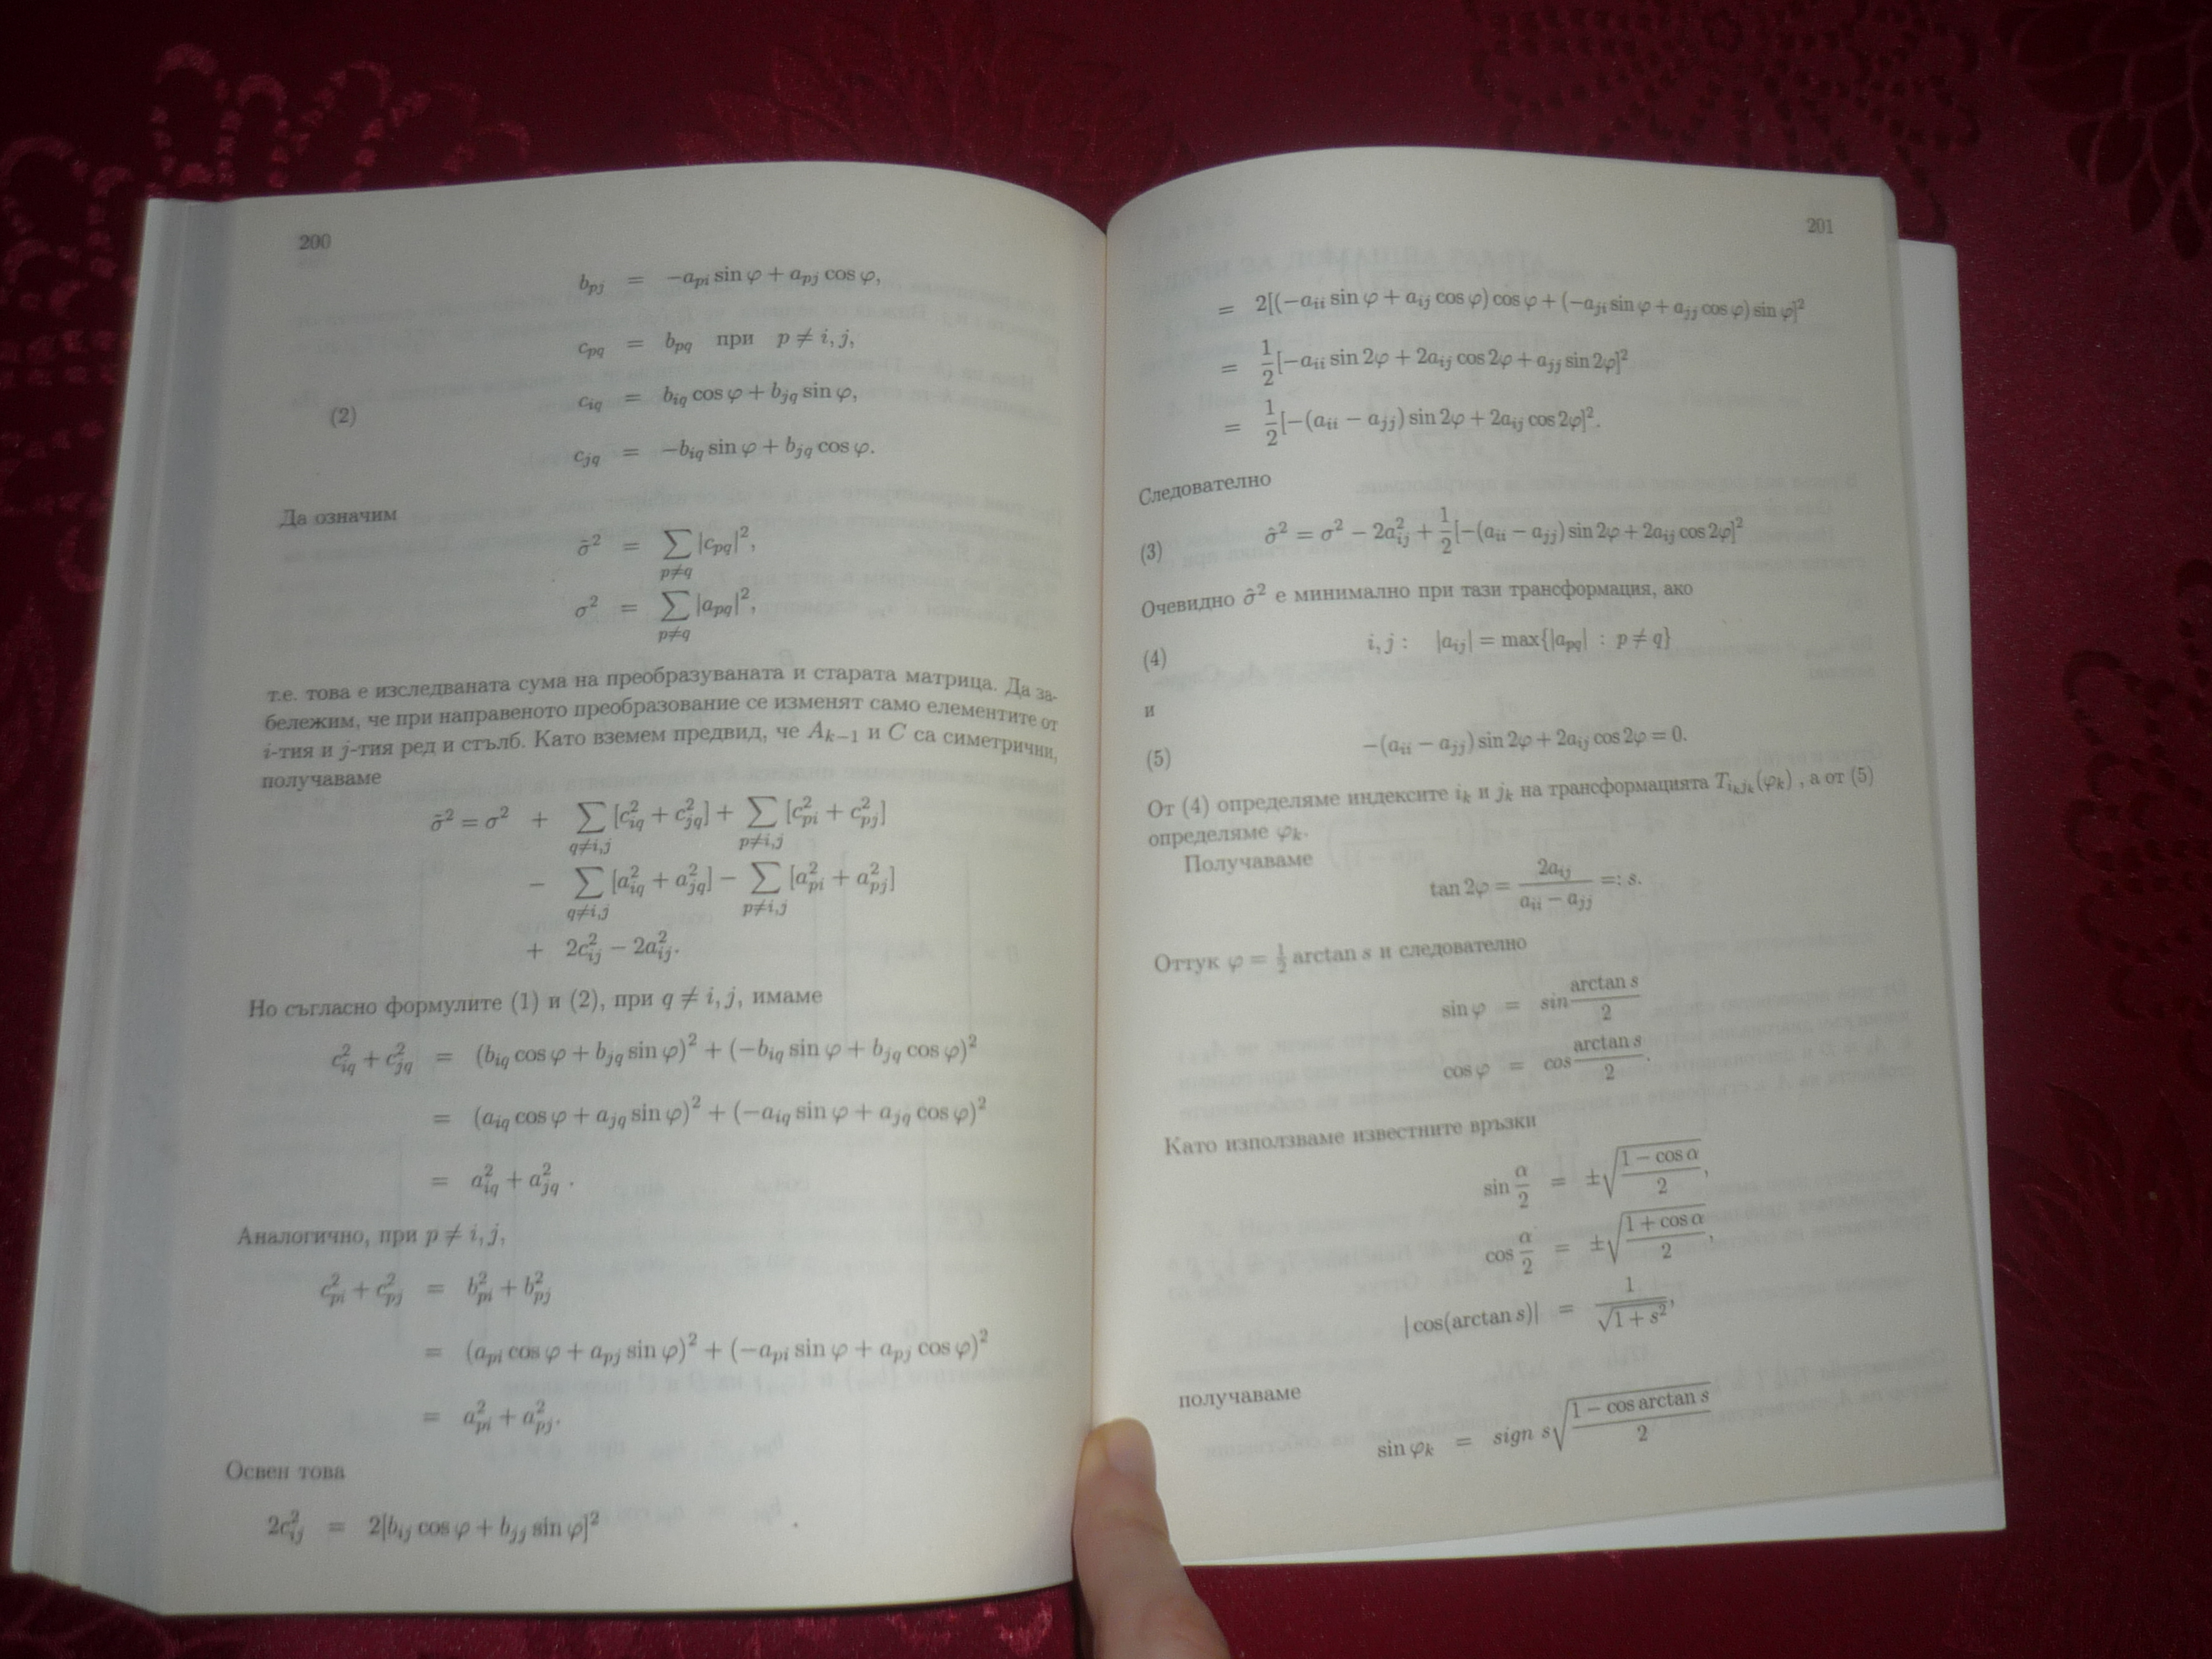 200
b_{pj} = −a_{pi} sin φ + a_{pj} cos φ,
c_{pq} = b_{pq} при p ≠ i, j,
(2) c_{iq} = b_{iq} cos φ + b_{jq} sin φ,
c_{jq} = −b_{iq} sin φ + b_{jq} cos φ.
Да означим
σ̂² = ∑_{p≠q} |c_{pq}|²,
σ² = ∑_{p≠q} |a_{pq}|²,
т.е. това е изследваната сума на преобразуваната и старата матрица. Да за-
бележим, че при направеното преобразование се изменят само елементите от
i-тия и j-тия ред и стълб. Като вземем предвид, че A_{k−1} и C са симетрични,
получаваме
σ̂² = σ² + ∑_{q≠i,j} [c²_{iq} + c²_{jq}] + ∑_{p≠i,j} [c²_{pi} + c²_{pj}]
− ∑_{q≠i,j} [a²_{iq} + a²_{jq}] − ∑_{p≠i,j} [a²_{pi} + a²_{pj}]
+ 2c²_{ij} − 2a²_{ij}.
Но съгласно формулите (1) и (2), при q ≠ i, j, имаме
c²_{iq} + c²_{jq} = (b_{iq} cos φ + b_{jq} sin φ)² + (−b_{iq} sin φ + b_{jq} cos φ)²
= (a_{iq} cos φ + a_{jq} sin φ)² + (−a_{iq} sin φ + a_{jq} cos φ)²
= a²_{iq} + a²_{jq} .
Аналогично, при p ≠ i, j,
c²_{pi} + c²_{pj} = b²_{pi} + b²_{pj}
= (a_{pi} cos φ + a_{pj} sin φ)² + (−a_{pi} sin φ + a_{pj} cos φ)²
= a²_{pi} + a²_{pj}.
Освен това
2c²_{ij} = 2[b_{ij} cos φ + b_{jj} sin φ]²
201
= 2[(−a_{ii} sin φ + a_{ij} cos φ) cos φ + (−a_{ji} sin φ + a_{jj} cos φ) sin φ]²
= 1/2 [−a_{ii} sin 2φ + 2a_{ij} cos 2φ + a_{jj} sin 2φ]²
= 1/2 [−(a_{ii} − a_{jj}) sin 2φ + 2a_{ij} cos 2φ]².
Следователно
(3) σ̂² = σ² − 2a²_{ij} + 1/2 [−(a_{ii} − a_{jj}) sin 2φ + 2a_{ij} cos 2φ]²
Очевидно σ̂² е минимално при тази трансформация, ако
(4) i, j : |a_{ij}| = max{|a_{pq}| : p ≠ q}
и
(5) −(a_{ii} − a_{jj}) sin 2φ + 2a_{ij} cos 2φ = 0.
От (4) определяме индексите i_k и j_k на трансформацията T_{i_k j_k}(φ_k) , а от (5)
определяме φ_k.
Получаваме
tan 2φ = 2a_{ij} / (a_{ii} − a_{jj}) =: s.
Оттук φ = 1/2 arctan s и следователно
sin φ = sin (arctan s)/2
cos φ = cos (arctan s)/2.
Като използваме известните връзки
sin α/2 = ±√((1 − cos α)/2),
cos α/2 = ±√((1 + cos α)/2),
|cos(arctan s)| = 1/√(1 + s²),
получаваме
sin φ_k = sign s√((1 − cos arctan s)/2)